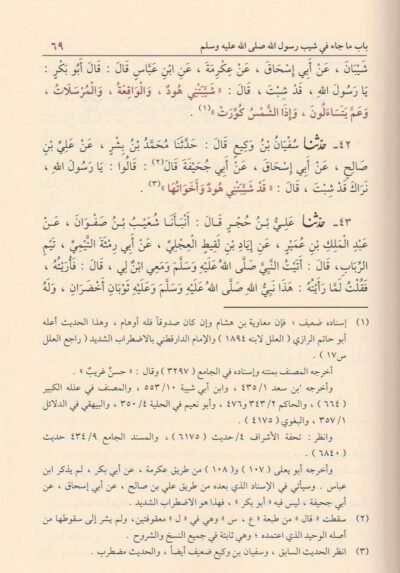 باب ما جاء في شيب رسول الله صلى الله عليه وسلم ٦٩
شَيْبَانَ ، عَنْ أَبِي إِسْحَاقَ ، عَنْ عِكْرِمَةَ ، عَنِ ابْنِ عَبَّاسٍ قَالَ : قَالَ أَبُو بَكْرٍ :
يَا رَسُولَ اللهِ ، قَدْ شِبْتَ ، قَالَ : « شَيَّبَتْنِي هُودٌ ، وَالْوَاقِعَةُ ، وَالْمُرْسَلَاتُ ،
وَعَمَّ يَتَسَاءَلُونَ ، وَإِذَا الشَّمْسُ كُوِّرَتْ »(١) .
٤٢- حَدَّثَنَا سُفْيَانُ بْنُ وَكِيعٍ قَالَ : حَدَّثَنَا مُحَمَّدُ بْنُ بِشْرٍ ، عَنْ عَلِيِّ بْنِ
صَالِحٍ ، عَنْ أَبِي إِسْحَاقَ ، عَنْ أَبِي جُحَيْفَةَ قَالَ(٢) : قَالُوا : يَا رَسُولَ اللهِ ،
نَرَاكَ قَدْ شِبْتَ ، قَالَ : « قَدْ شَيَّبَتْنِي هُودٌ وَأَخَوَاتُهَا »(٣) .
٤٣- حَدَّثَنَا عَلِيُّ بْنُ حُجْرٍ قَالَ : أَنْبَأَنَا شُعَيْبُ بْنُ صَفْوَانَ ، عَنْ
عَبْدِ الْمَلِكِ بْنِ عُمَيْرٍ ، عَنْ إِيَادِ بْنِ لَقِيطٍ الْعِجْلِيِّ ، عَنْ أَبِي رِمْثَةَ التَّيْمِيِّ ، تَيْمِ
الرِّبَابِ ، قَالَ : أَتَيْتُ النَّبِيَّ صَلَّى اللهُ عَلَيْهِ وَسَلَّمَ وَمَعِي ابْنٌ لِي ، قَالَ : فَأُرِيتُهُ ،
فَقُلْتُ لَمَّا رَأَيْتُهُ : هَذَا نَبِيُّ اللهِ صَلَّى اللهُ عَلَيْهِ وَسَلَّمَ وَعَلَيْهِ ثَوْبَانِ أَخْضَرَانِ ، وَلَهُ
(١) إسناده ضعيف ؛ فإن معاوية بن هشام وإن كان صدوقاً فله أوهام ، وهذا الحديث أعله
أبو حاتم الرازي ( العلل لابنه ١٨٩٤ ) والإمام الدارقطني بالاضطراب الشديد ( راجع العلل
س١٧ ) .
أخرجه المصنف بمتنه وإسناده في الجامع ( ٣٢٩٧ ) وقال : « حسنٌ غريبٌ » .
وأخرجه : ابن سعد ٤٣٥/١ ، وابن أبي شيبة ٥٥٣/١٠ ، والمصنف في علله الكبير
( ٦٦٤ ) ، والحاكم ٣٤٣/٢ و٤٧٦ ، وأبو نعيم في الحلية ٣٥٠/٤ ، والبيهقي في الدلائل
٣٥٧/١ ، والبغوي ( ٤١٧٥ ) .
وانظر : تحفة الأشراف ٤/حديث ( ٦١٧٥ ) ، والمسند الجامع ٤٣٤/٩ حديث
( ٦٨٤٠ ) .
وأخرجه أبو يعلى ( ١٠٧ ) و( ١٠٨ ) من طريق عكرمة ، عن أبي بكر ، لم يذكر ابن
عباس . وسيأتي في الإسناد الذي بعده من طريق علي بن صالح ، عن أبي إسحاق ، عن
أبي جحيفة ، ليس فيه « أبو بكر » ، فهذا هو الاضطراب الشديد .
(٢) سقطت « قال » من طبعة « ع ، س » وهي في « ل » معقوفتين، ولم يشر إلى سقوطها من
أصله الوحيد الذي اعتمده ؛ وهي ثابتة في جميع النسخ والشروح .
(٣) انظر الحديث السابق ، وسفيان بن وكيع ضعيف أيضاً ، والحديث مضطرب .